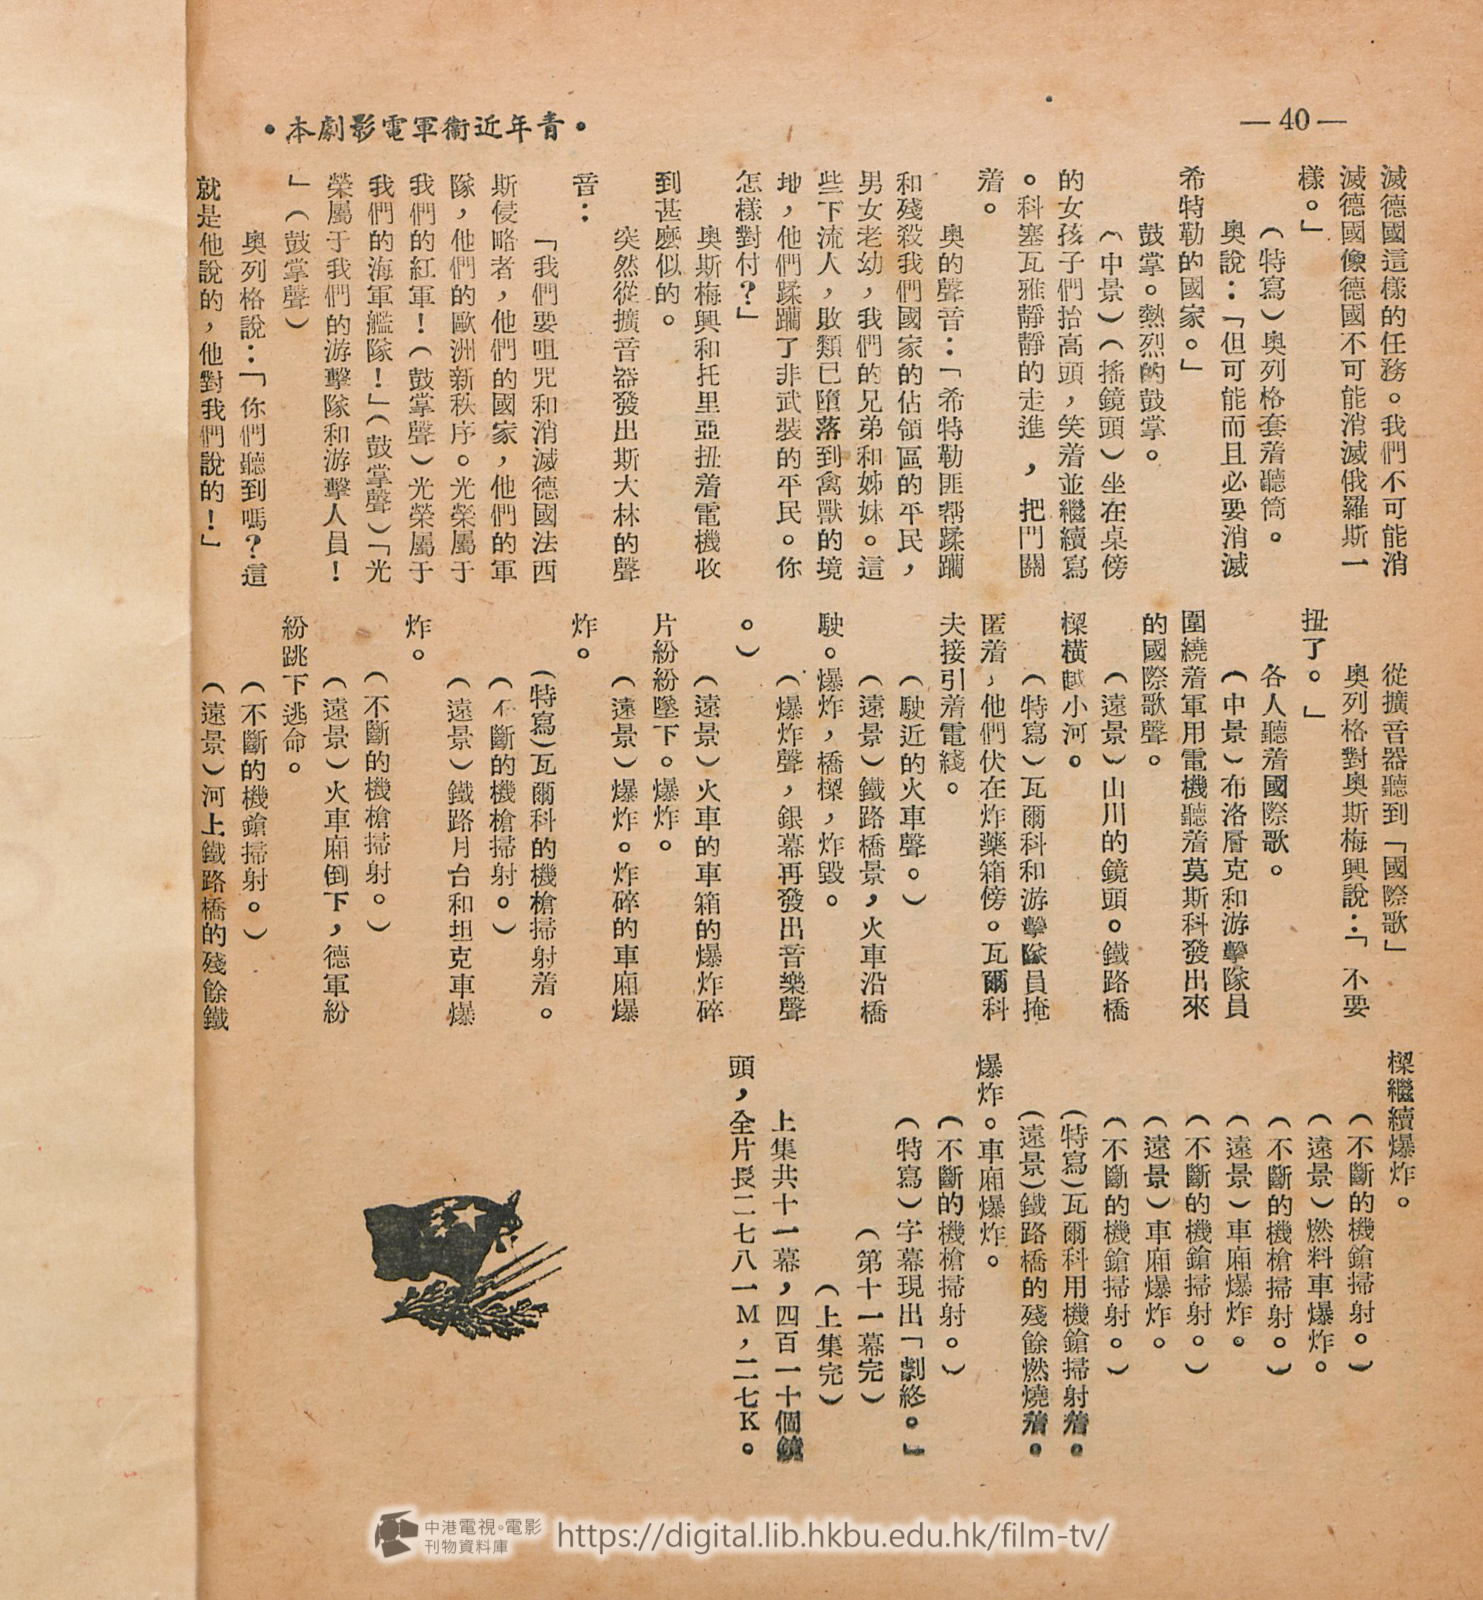 —40—
•青年近衞軍電影劇本•
滅德國這樣的任務。我們不可能消
滅德國像德國不可能消滅俄羅斯一
樣。」
（特寫）奧列格套着聽筒。
奧說：「但可能而且必要消滅
希特勒的國家。」
鼓掌。熱烈的鼓掌。
（中景）（搖鏡頭）坐在桌傍
的女孩子們抬高頭，笑着並繼續寫
。科塞瓦雅靜靜的走進，把門關
着。
奧的聲音：「希特勒匪帮蹂躪
和殘殺我們國家的佔領區的平民，
男女老幼，我們的兄弟和姊妹。這
些下流人，敗類已墮落到禽獸的境
地，他們蹂躪了非武裝的平民。你
怎樣對付？」
奧斯梅興和托里亞扭着電機收
到甚麽似的。
突然從擴音器發出斯大林的聲
音：
「我們要咀咒和消滅德國法西
斯侵略者，他們的國家，他們的軍
隊，他們的歐洲新秩序。光榮屬于
我們的紅軍！（鼓掌聲）光榮屬于
我們的海軍艦隊！」（鼓掌聲）「光
榮屬于我們的游擊隊和游擊人員！
」（鼓掌聲）
奧列格說：「你們聽到嗎？這
就是他說的，他對我們說的！」
從擴音器聽到「國際歌」
奧列格對奧斯梅興說：「不要
扭了。」
各人聽着國際歌。
（中景）布洛層克和游擊隊員
圍繞着軍用電機聽着莫斯科發出來
的國際歌聲。
（遠景）山川的鏡頭。鐵路橋
樑橫越小河。
（特寫）瓦爾科和游擊隊員掩
匿着，他們伏在炸藥箱傍。瓦爾科
夫接引着電綫。
（駛近的火車聲。）
（遠景）鐵路橋景，火車沿橋
駛。爆炸，橋樑，炸毀。
（爆炸聲，銀幕再發出音樂聲
。）
（遠景）火車的車箱的爆炸碎
片紛紛墜下。爆炸。
（遠景）爆炸。炸碎的車廂爆
炸。
（特寫）瓦爾科的機槍掃射着。
（不斷的機槍掃射。）
（遠景）鐵路月台和坦克車爆
炸。
（不斷的機槍掃射。）
（遠景）火車廂倒下，德軍紛
紛跳下逃命。
（不斷的機鎗掃射。）
（遠景）河上鐵路橋的殘餘鐵
樑繼續爆炸。
（不斷的機鎗掃射。）
（遠景）燃料車爆炸。
（不斷的機槍掃射。）
（遠景）車廂爆炸。
（不斷的機鎗掃射。）
（遠景）車廂爆炸。
（不斷的機鎗掃射。）
（特寫）瓦爾科用機鎗掃射着。
（遠景）鐵路橋的殘餘燃燒着。
爆炸。車廂爆炸。
（不斷的機槍掃射。）
（特寫）字幕現出「劇終。」
（第十一幕完）
（上集完）
上集共十一幕，四百一十個鏡
頭，全片長二七八一M，二七K。
中港電視·電影
刊物資料庫
https://digital.lib.hkbu.edu.hk/film-tv/